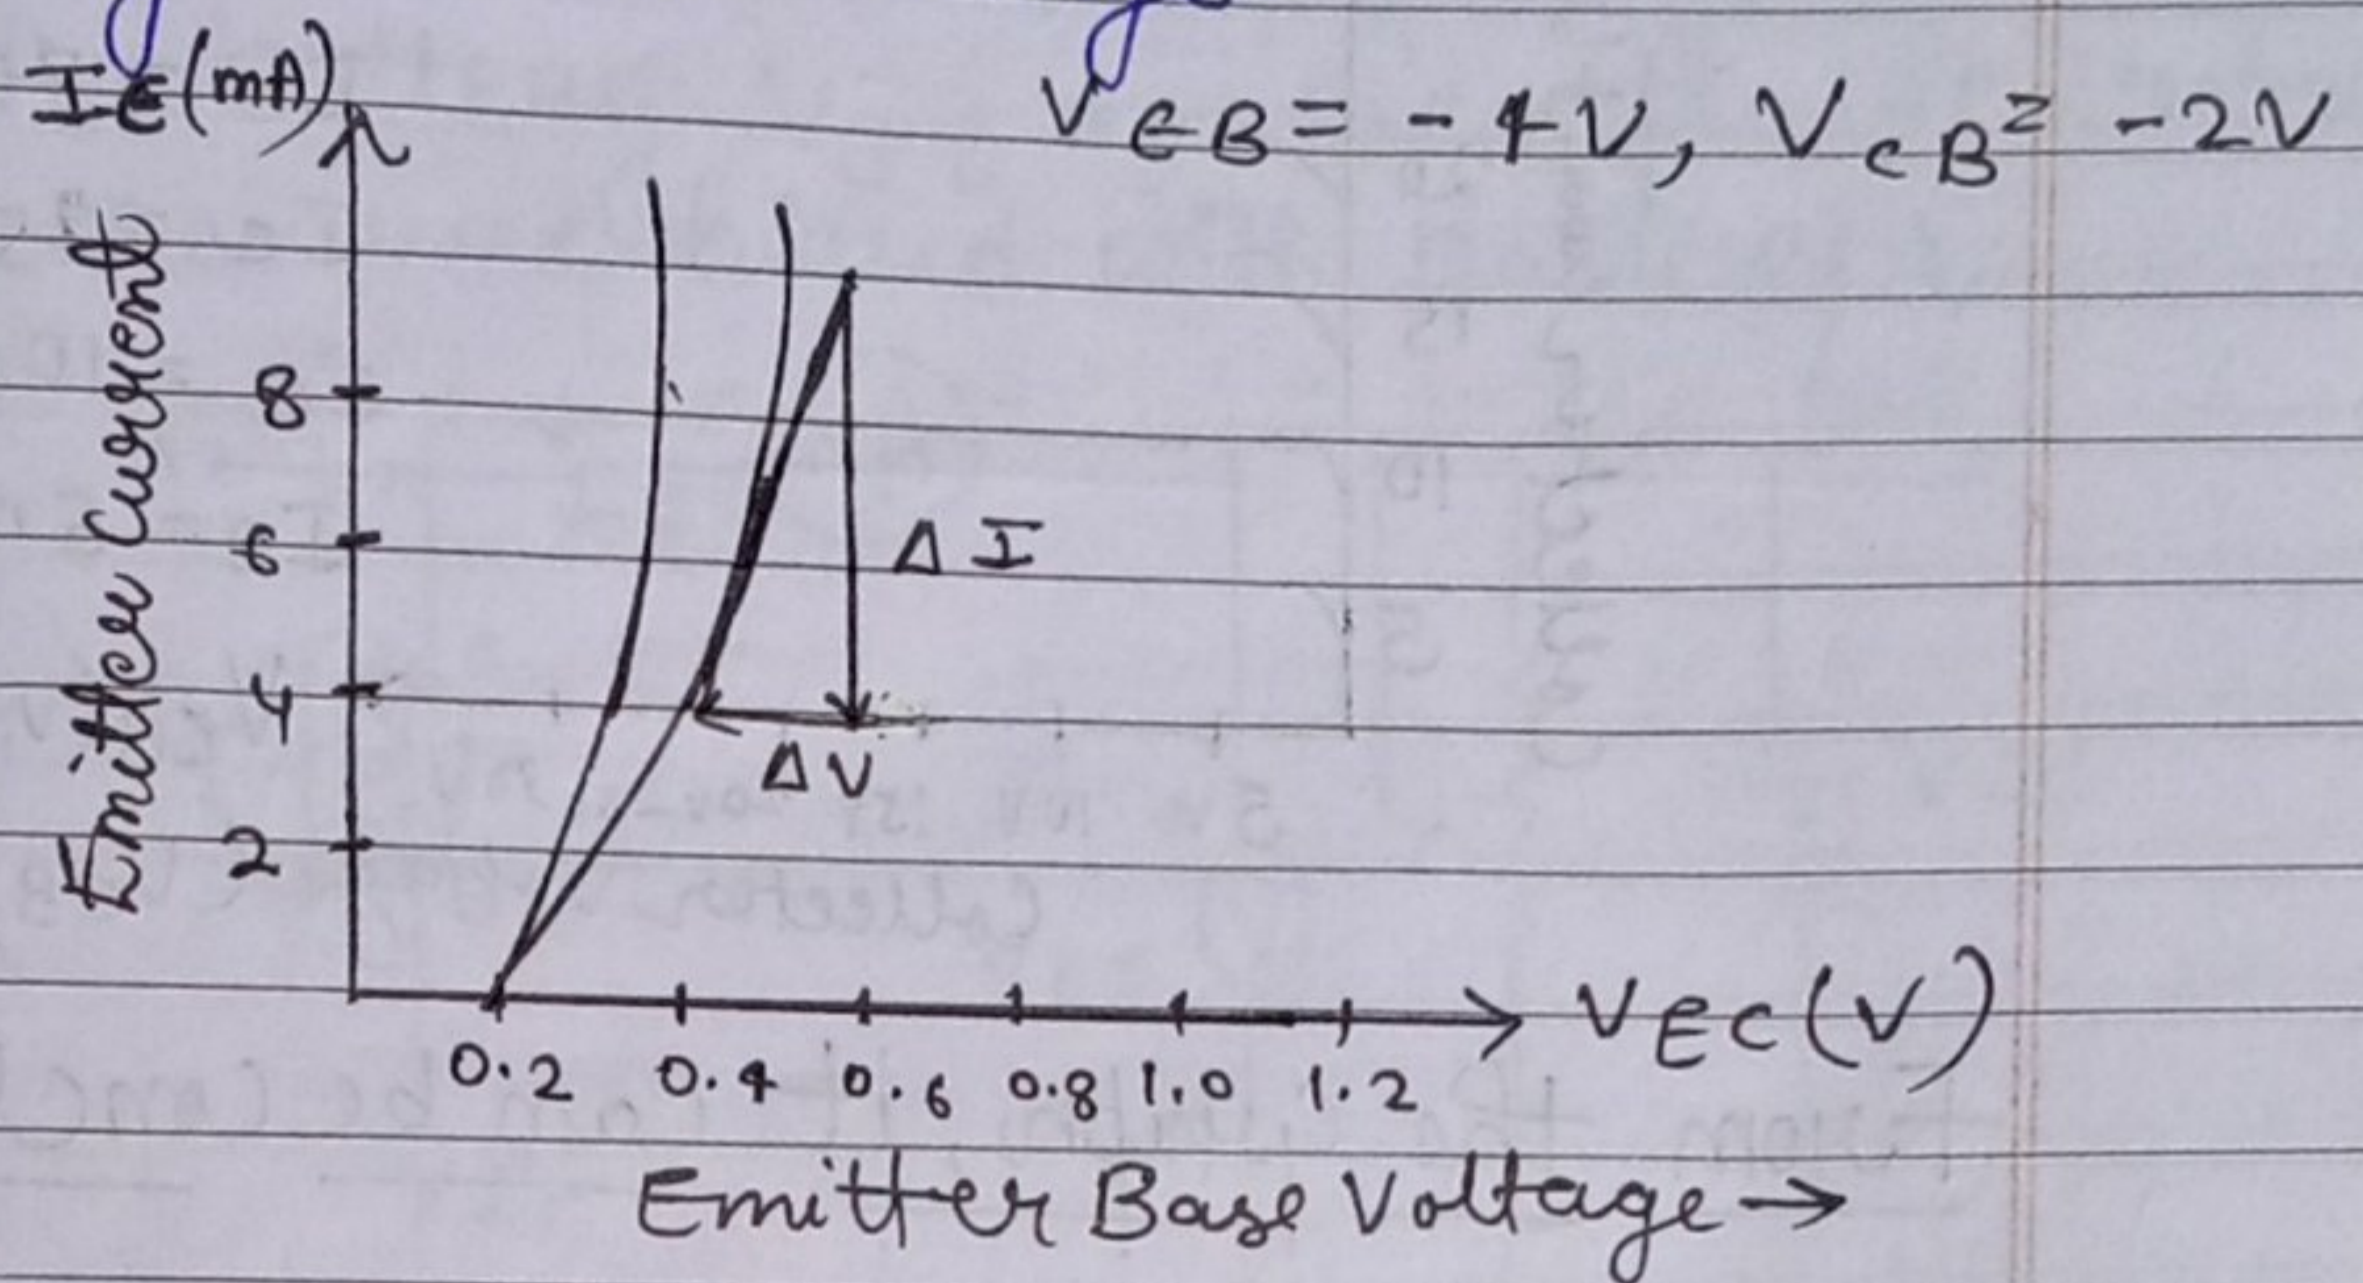 IE(mA)
VEB = -4V, VCB = -2V
Emitter Current
8
6
4
2
ΔI
ΔV
0.2 0.4 0.6 0.8 1.0 1.2
VEC(V)
Emitter Base Voltage →